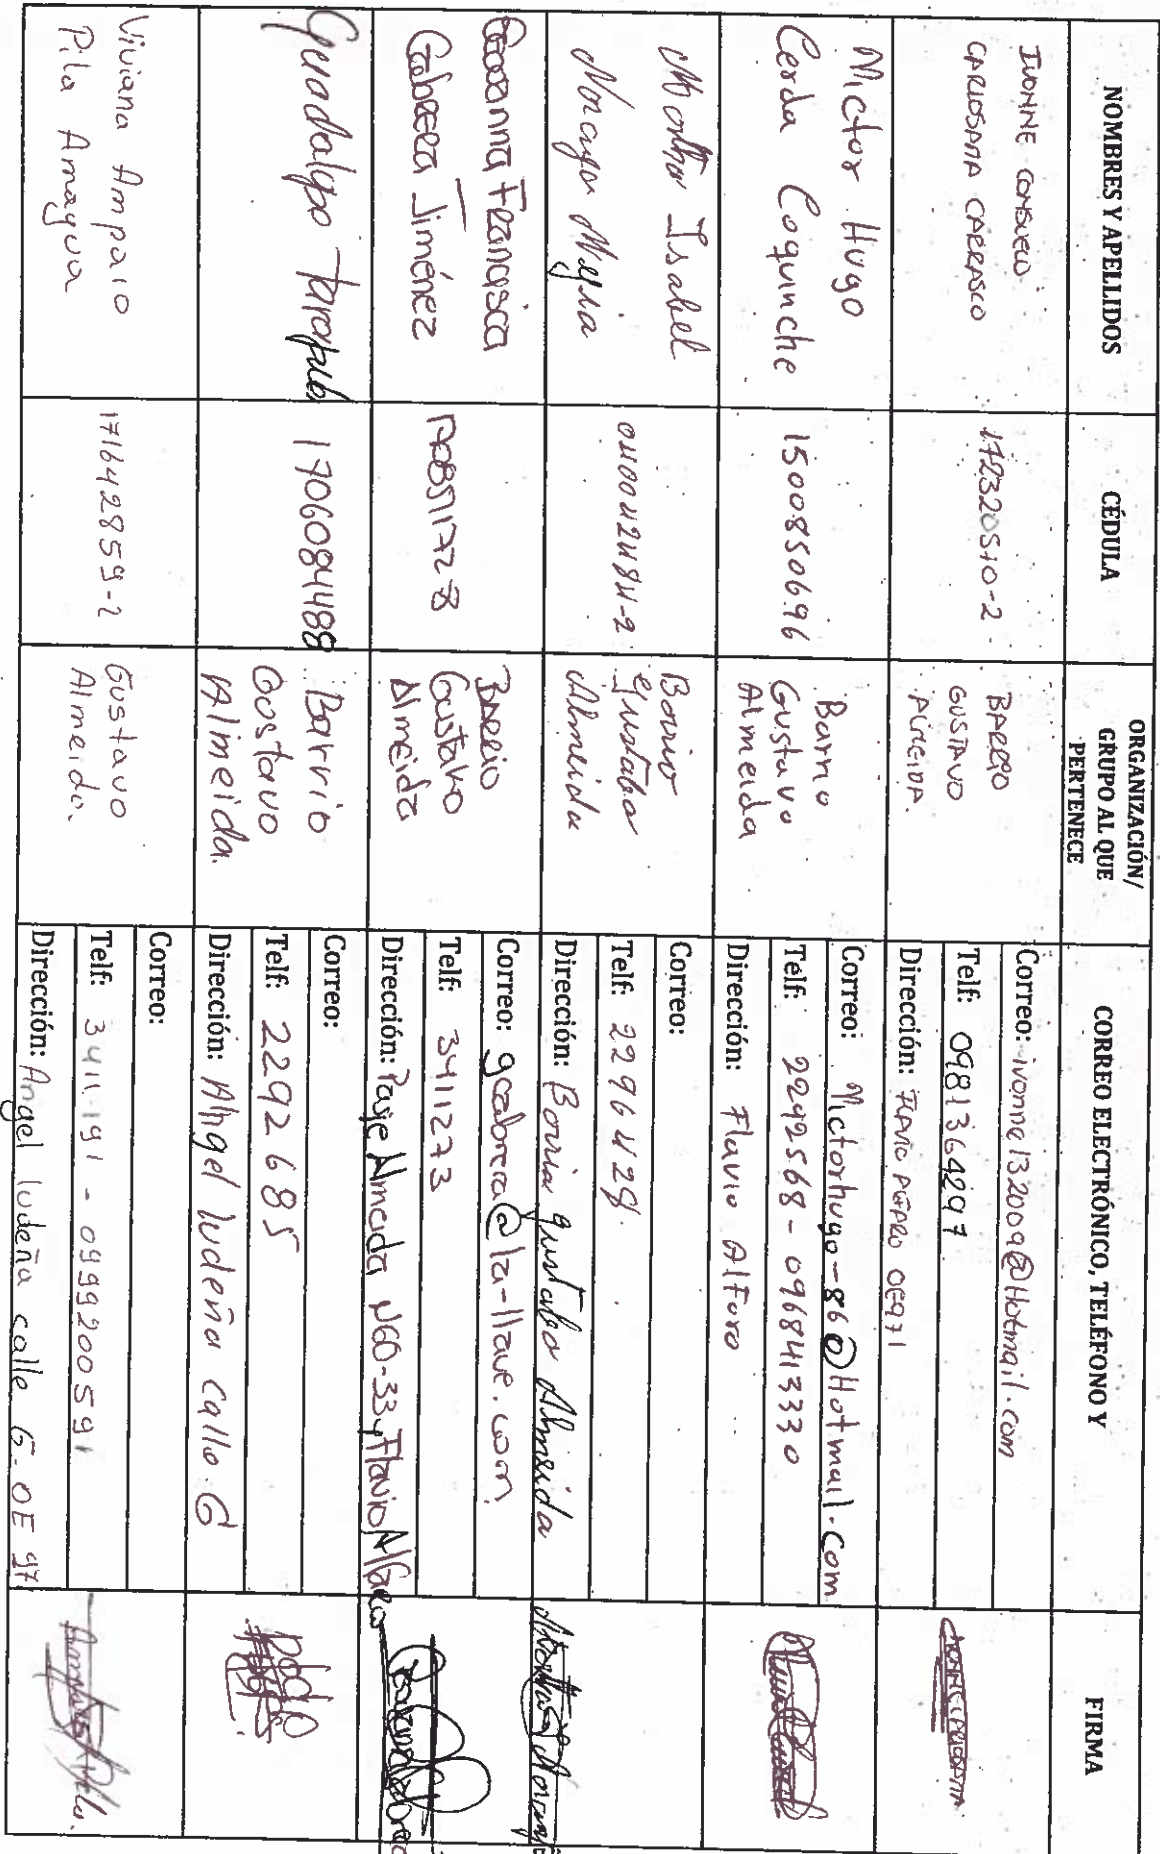 NOMBRES Y APELLIDOS
CÉDULA
ORGANIZACIÓN/
GRUPO AL QUE
PERTENECE
CORREO ELECTRÓNICO, TELÉFONO Y
FIRMA
IVONNE CONSUELO
CARLOSAMA CARRASCO
172320510-2
BARRIO
GUSTAVO
Correo: ivonne132009@Hotmail.com
Telf: 0981364297
Dirección: FLAVIO ALFARO OE971
Victor Hugo
Cerda Coquinche
1500850696
Barrio
Gustavo
Almeida
Correo: Victorhugo-86@Hotmail.com
Telf: 2292568-0968413330
Dirección: Flavio Alfaro
Martha Isabel
Noraya Mejia
040042484-2
Barrio
gustabo
Almeida
Correo:
Telf: 2296428
Dirección: Barrio gustabo Almeida
Geovanna Francisca
Cabrera Jiménez
170851172-8
Barrio
Gustavo
Almeida
Correo: gcabrera@la-llave.com
Telf: 3411273
Dirección: Pasje Almeida N60-33 y Flavio Alfaro
Guadalupo
1706084488
Barrio
Gostavo
Almeida
Correo:
Telf: 2292685
Dirección: Ahgel ludeña calle G
Viviana Amparo
Pila Amagua
171642859-2
Gustavo
Almeida.
Correo:
Telf: 3411-191 - 0999200591
Dirección: Angel ludeña calle G. OE 97